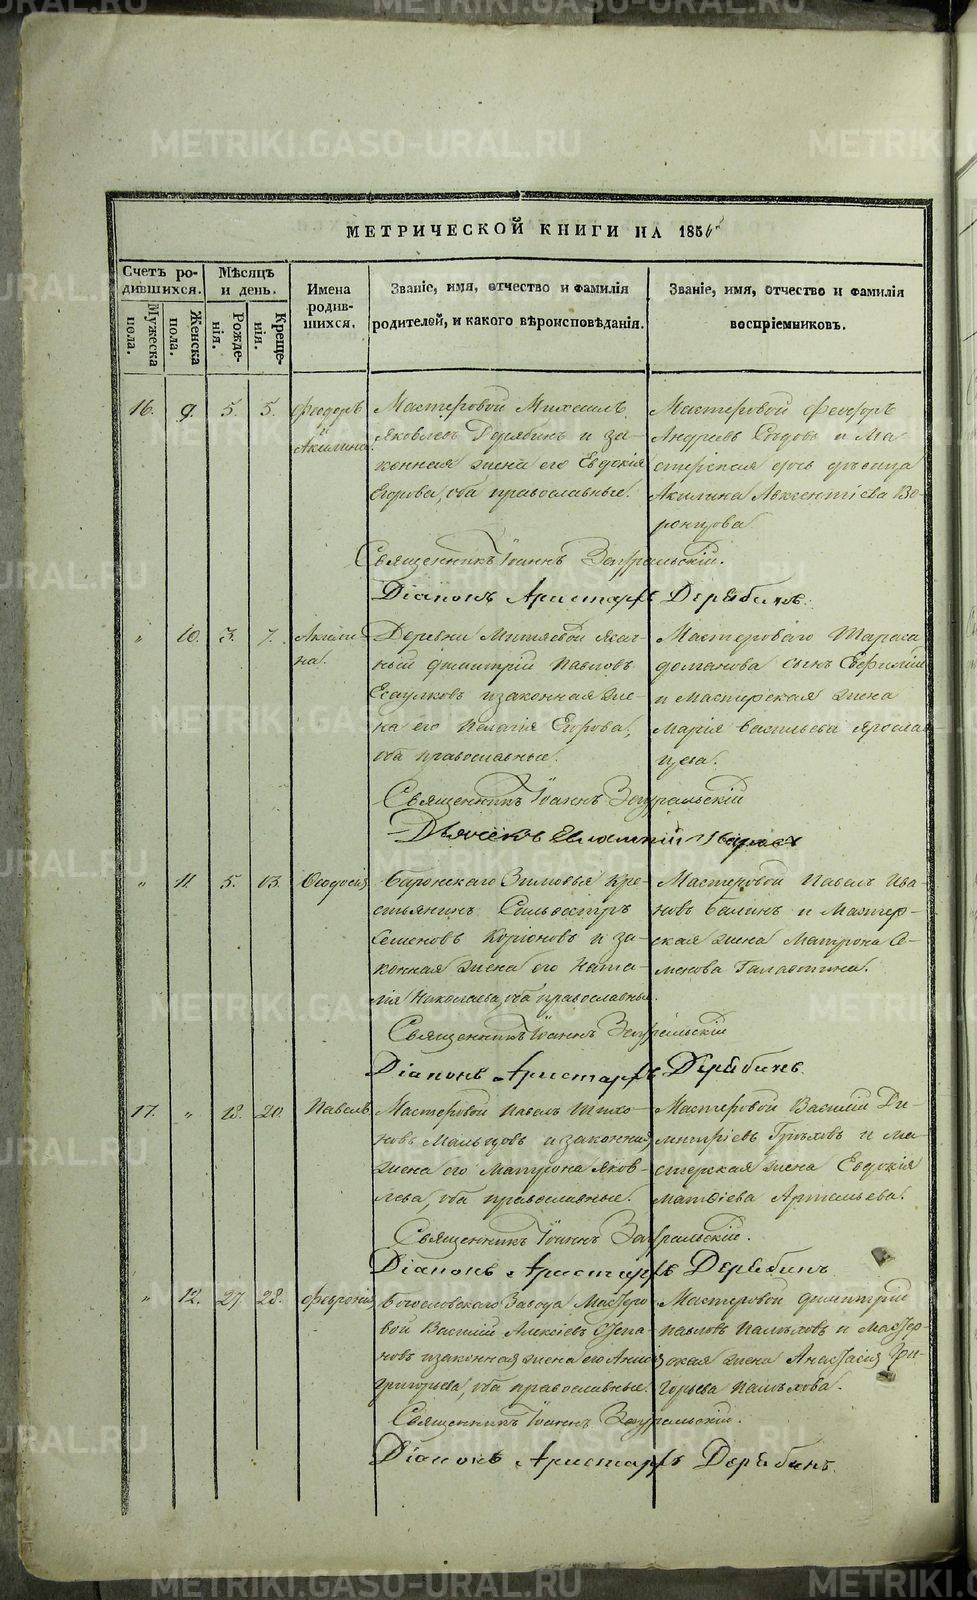 METRIKI.GASO-URAL.RU
МЕТРИЧЕСКОЙ КНИГИ НА 1856
Счетъ ро-
дившихся.
Мужеска пола.
Женска пола.
Мѣсяцъ
и день.
Рожде-
нія.
Креще-
нія.
Имена
родив-
шихся.
Званіе, имя, отчество и фамилія
родителей, и какого вѣроисповѣданія.
Званіе, имя, отчество и фамилія
воспріемниковъ.
16. 9. 5. 5. Феодоръ
и
Акилина.
Мастеровой Михаилъ
Яковлевъ Дерябинъ и за-
конная жена его Евдокія
Егорова, оба православные.
Мастеровой Феодоръ
Андреевъ и Ма-
стерская дочь дѣвица
Акилина Авксентіева Во-
ронцова.
Священникъ Іоаннъ Зауральскій.
Діаконъ Аристархъ Дерябинъ.
" 10. 3. 7. Акили-
на.
Деревни Митяевой Ясач-
ный Димитрій Павловъ
Есаулковъ и законная же-
на его Пелагія Егорова,
оба православные.
Мастероваго Тараса
сынъ Евфимій
и Мастерская жена
Марія Васильева Ярослав-
цева.
Священникъ Іоаннъ Зауральскій
Дьячекъ
" 11. 5. 13. Феодосія
Баронскаго Зимовья Кре-
стьянинъ Сильвестръ
Семеновъ Коріоновъ и за-
конная жена его Ната-
лія Николаева, оба православные.
Мастеровой Павелъ Ива-
новъ Балинъ и Мастер-
ская жена Матрона Се-
менова Галактина.
Священникъ Іоаннъ Зауральскій
Діаконъ Аристархъ Дерябинъ.
17. " 18. 20. Павелъ
Мастеровой Павелъ Тихо-
новъ Мальцовъ и законная
жена его Матрона Яков-
лева, оба православные.
Мастеровой Василій Ди-
митріевъ Грѣховъ и Ма-
стерская жена Евдокія
Матѳіева Артемьева.
Священникъ Іоаннъ Зауральскій.
Діаконъ Аристархъ Дерябинъ
" 12. 27. 28. Февронія
Богословскаго Завода Масте-
вой Василій Алексіевъ Степа-
новъ и законная жена его
Григорьева, оба православные.
Мастеровой Димитрій
Павловъ Пальховъ и Мастер-
ская жена Анастасія Гри-
горьева Пальхова.
Священникъ Іоаннъ Зауральскій.
Діаконъ Аристархъ Дерябинъ.